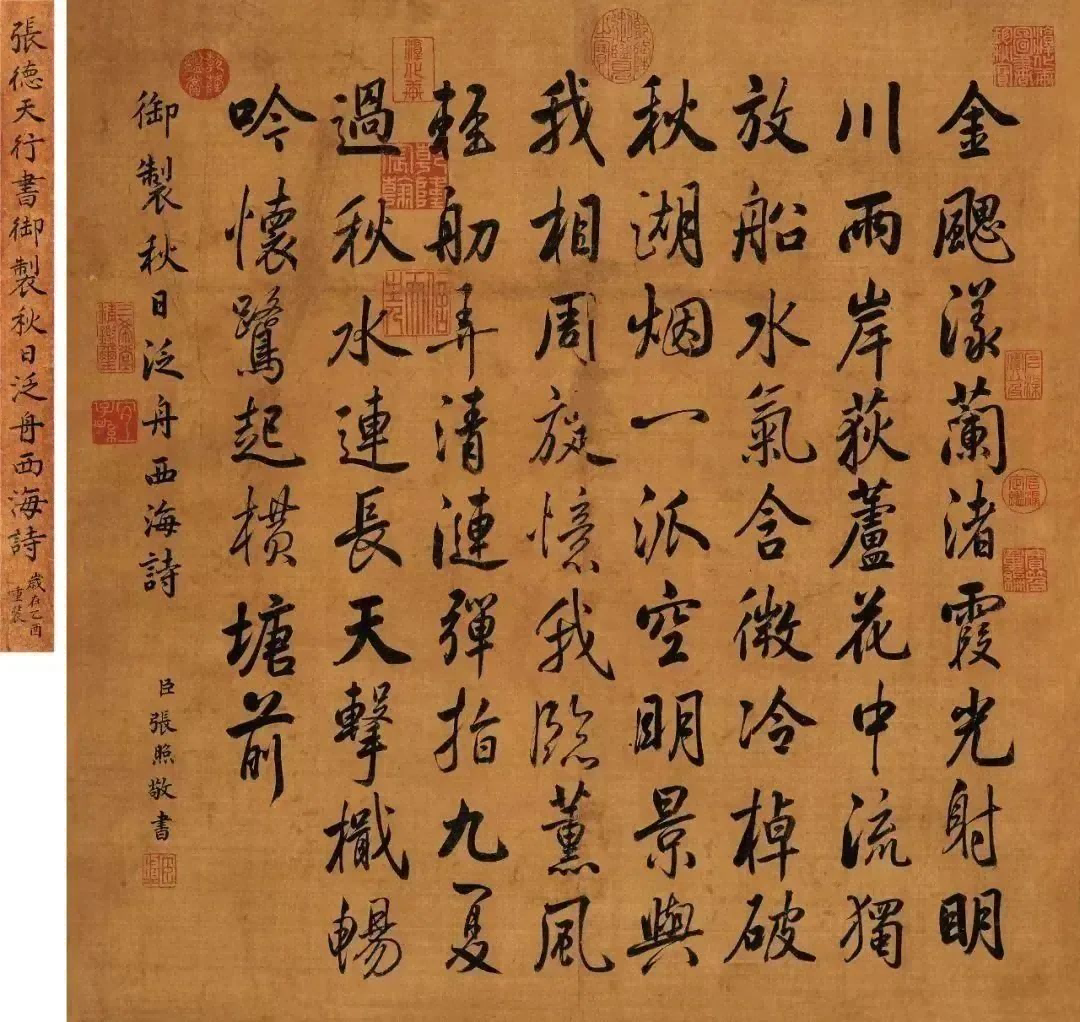 金颸漾蘭渚霞光射明
川兩岸荻蘆花中流獨
放船水氣含微冷棹破
秋湖烟一派空明景與
我相周旋憶我臨薰風
輕舠弄清漣彈指九夏
過秋水連長天擊檝暢
吟懷鷺起橫塘前
御製秋日泛舟西海詩
臣張照敬書
三希堂精鑑璽
宜子孫
張德天行書御製秋日泛舟西海詩
歲在乙酉
重裝